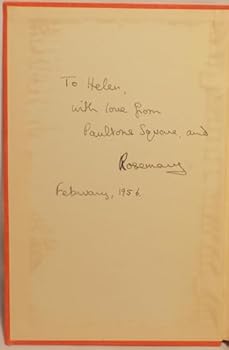 To Helen,
with love from
Paultons Square, and
Rosemary
February, 1956.